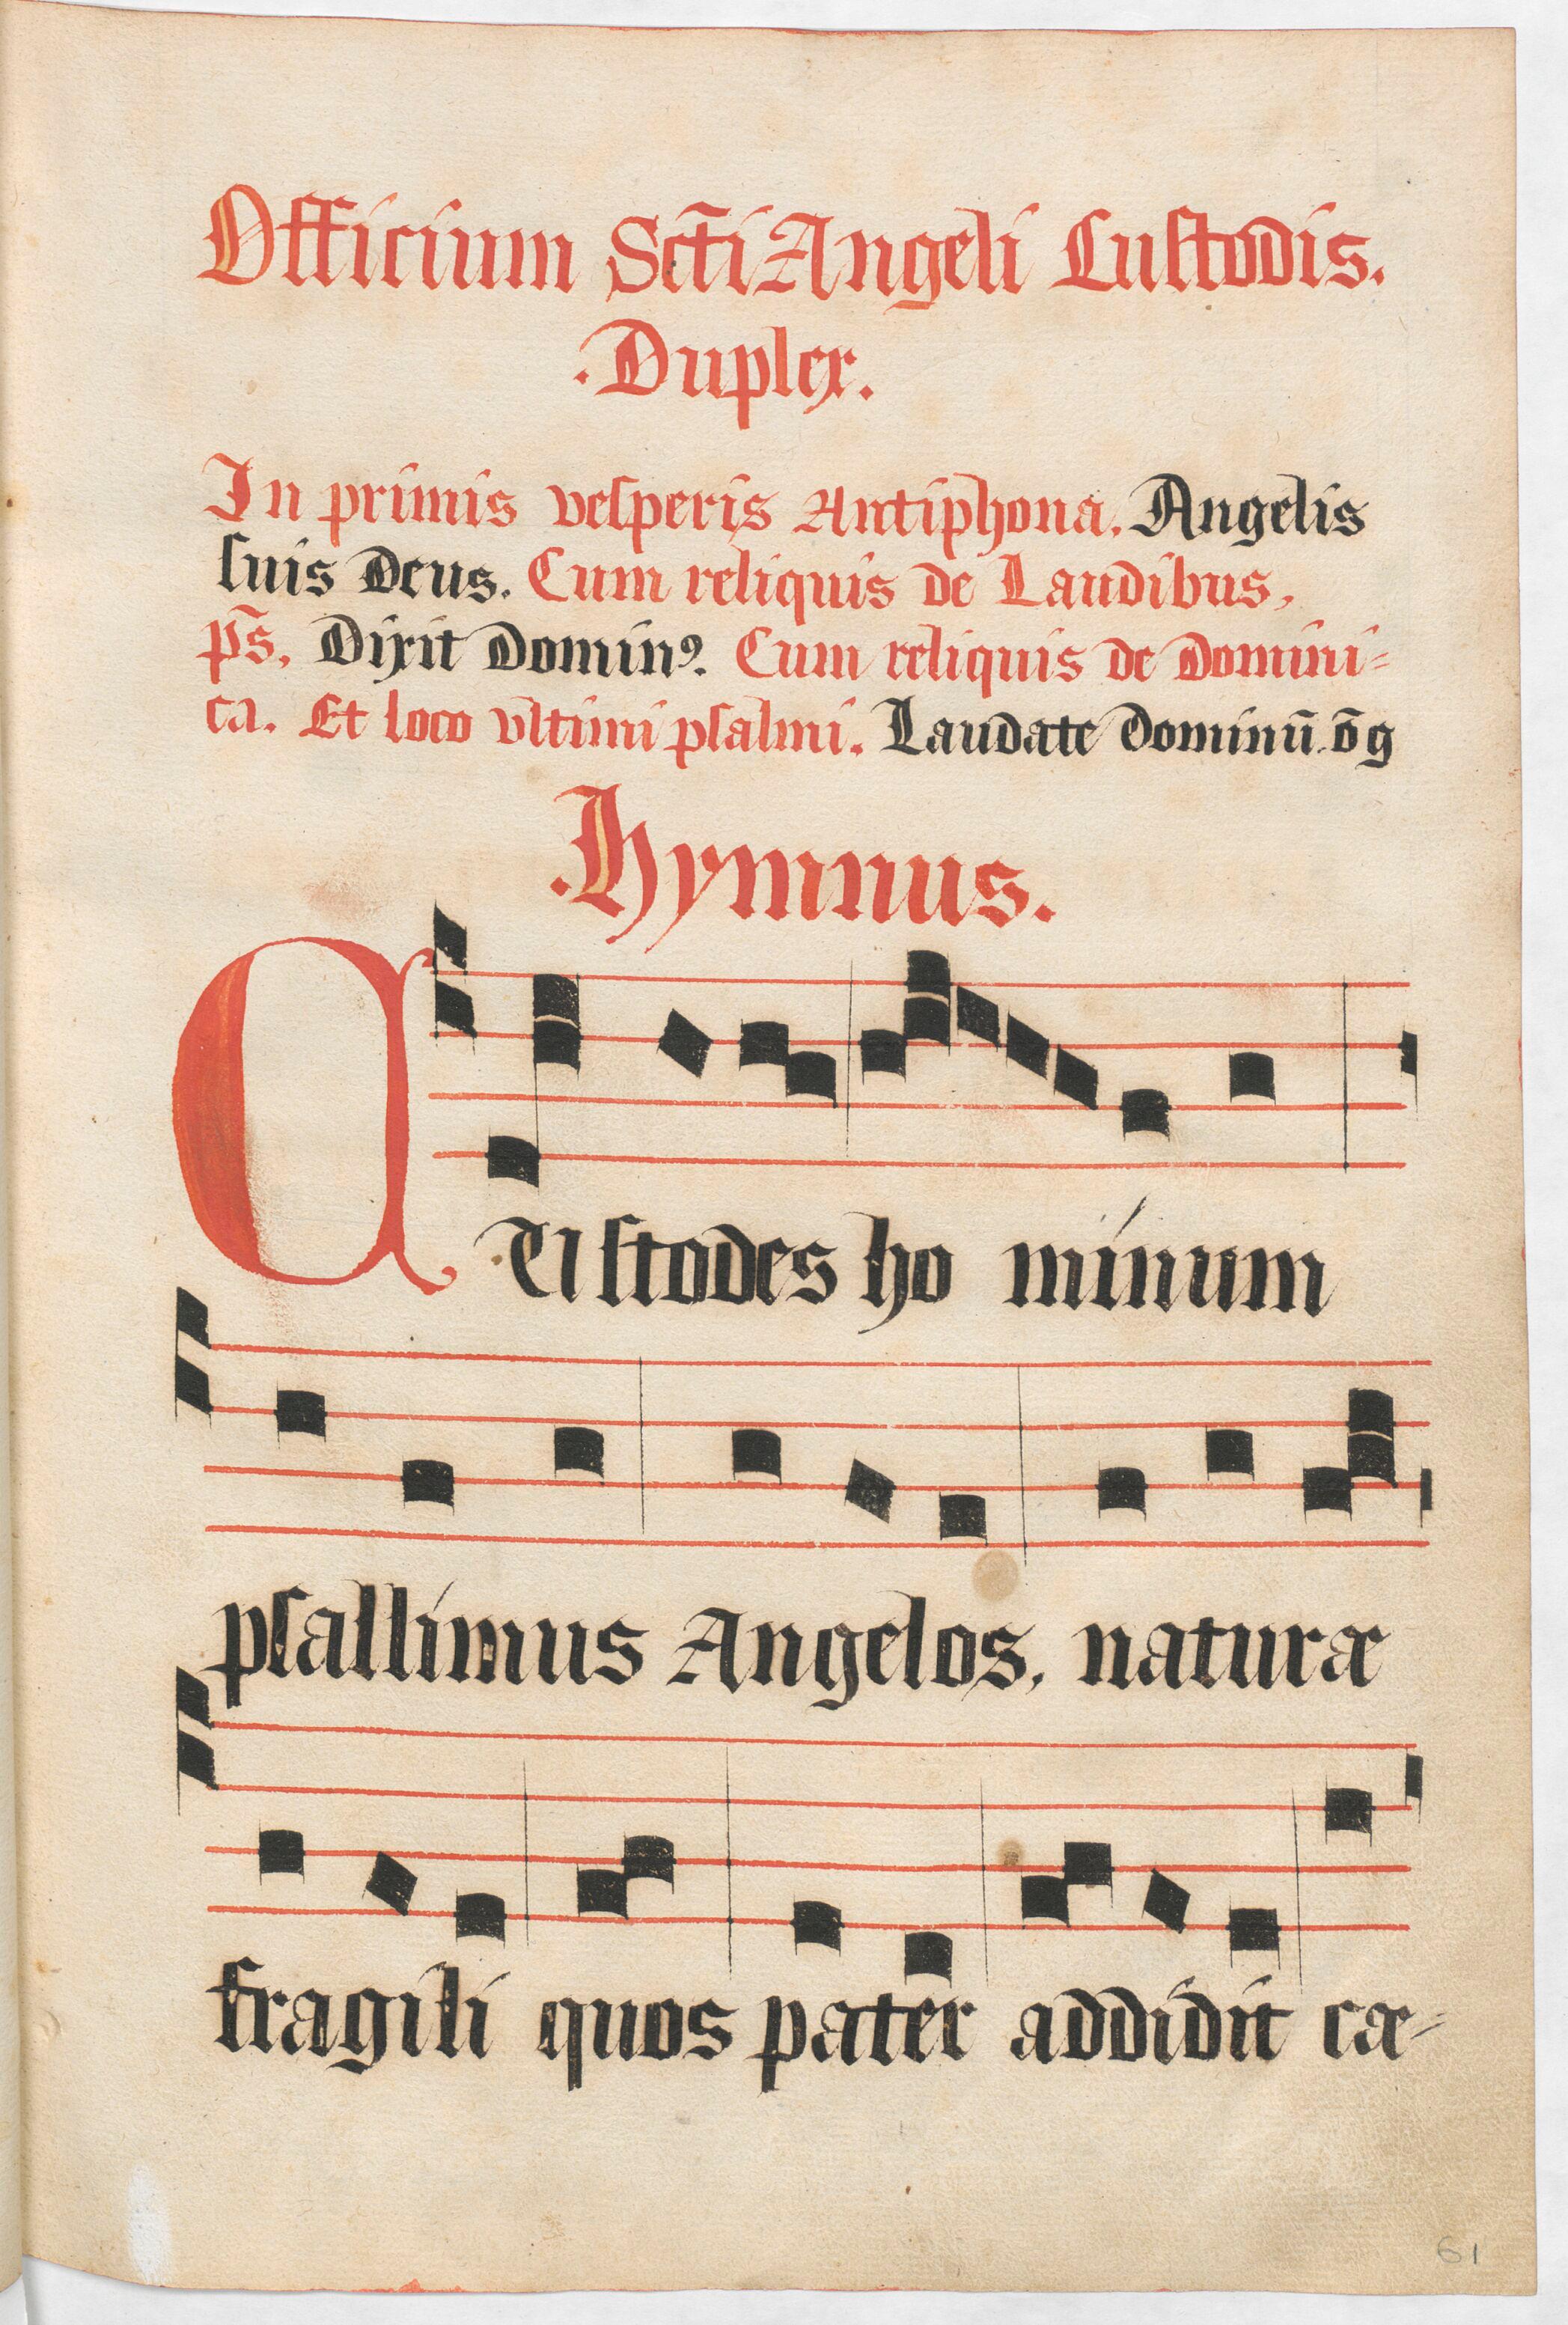 Officium Sct̃i Angeli Custodis.
.Duplex.
In primis vesperis Antiphona. Angelis
suis Deus. Cum reliquis de Laudibus,
ps̃. Dixit Dominꝰ. Cum reliquis de Domini=
ca. Et loco vltimi psalmi. Laudate Dominũ. õg
.Hymnus.
CUstodes ho mínum
psallímus Angelos, naturæ
fragili quos pater addidit cæ=
61